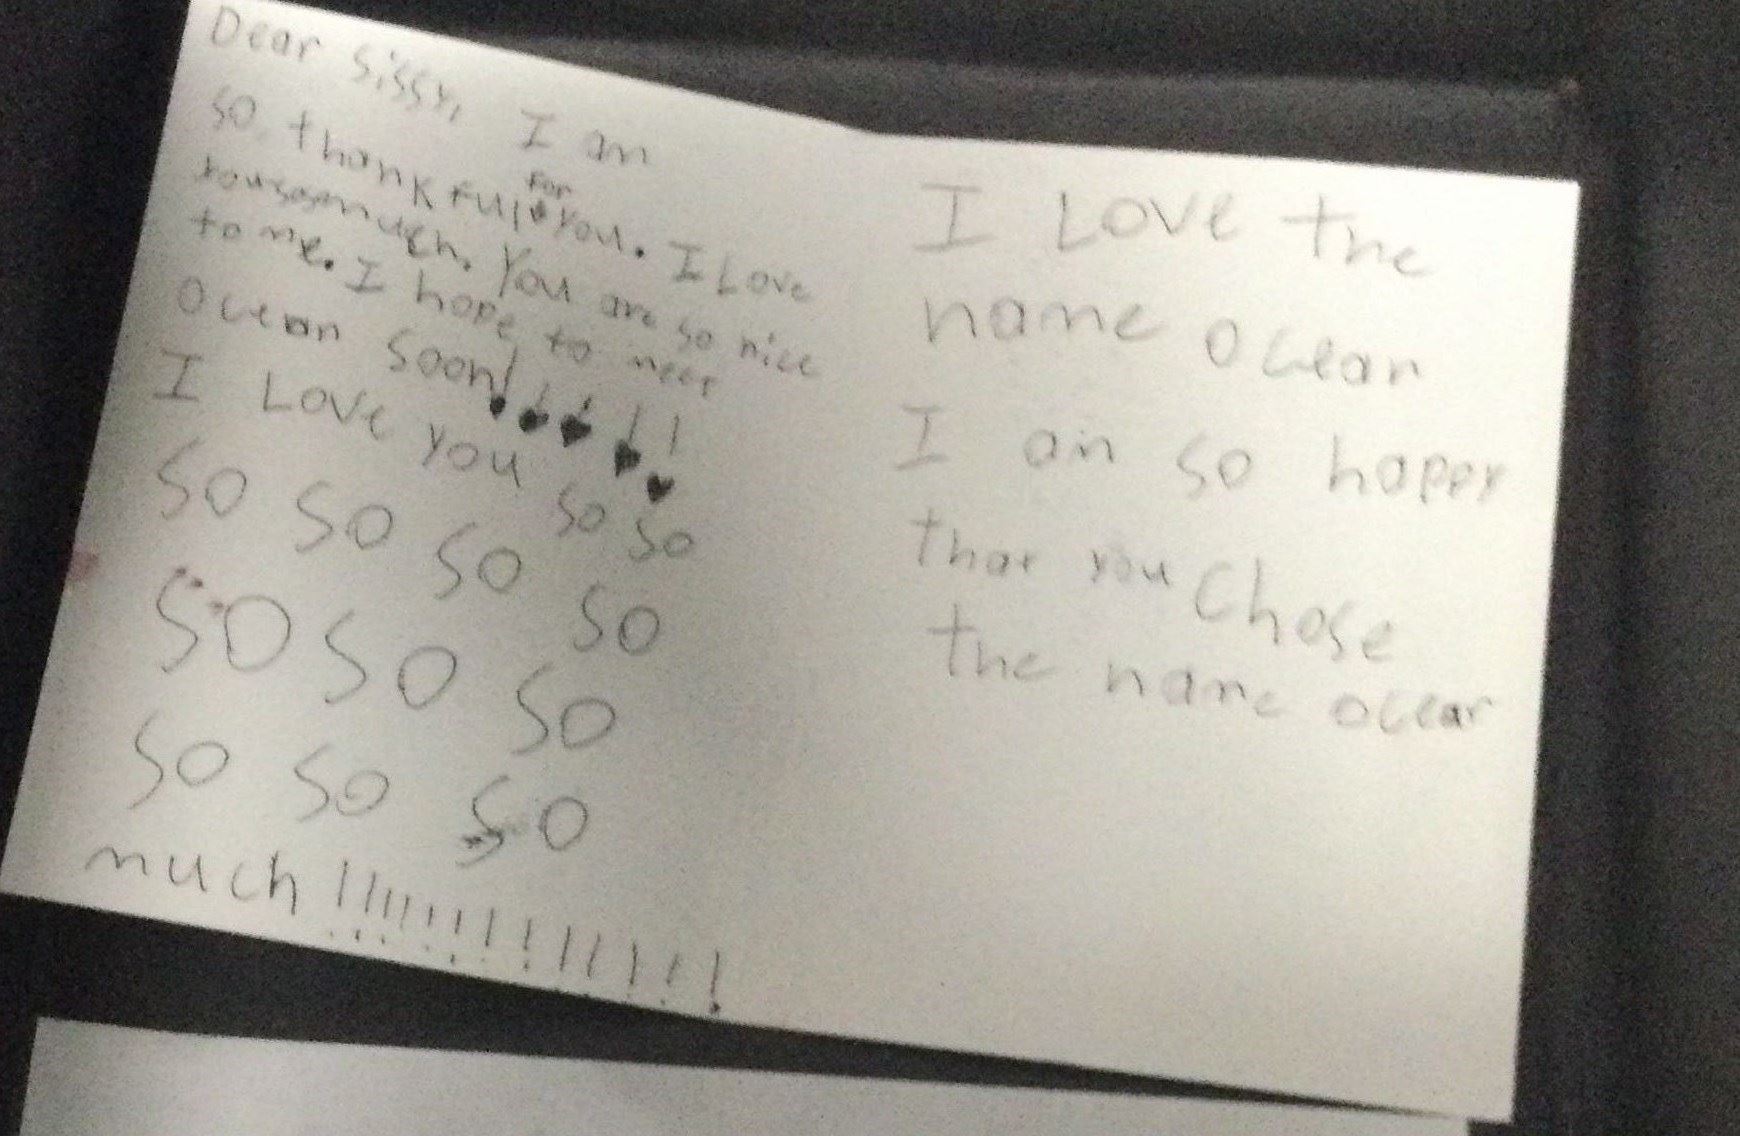 Dear Sissy, I am
so thankful for you. I Love
you so much. You are so nice
to me. I hope to meet
Ocean soon!!!!!
I Love you so so
so so so so
so so so
so so so
much!!!!!!!!!!!!!!!
I Love the
name ocean
I am so happy
that you Chose
the name ocean